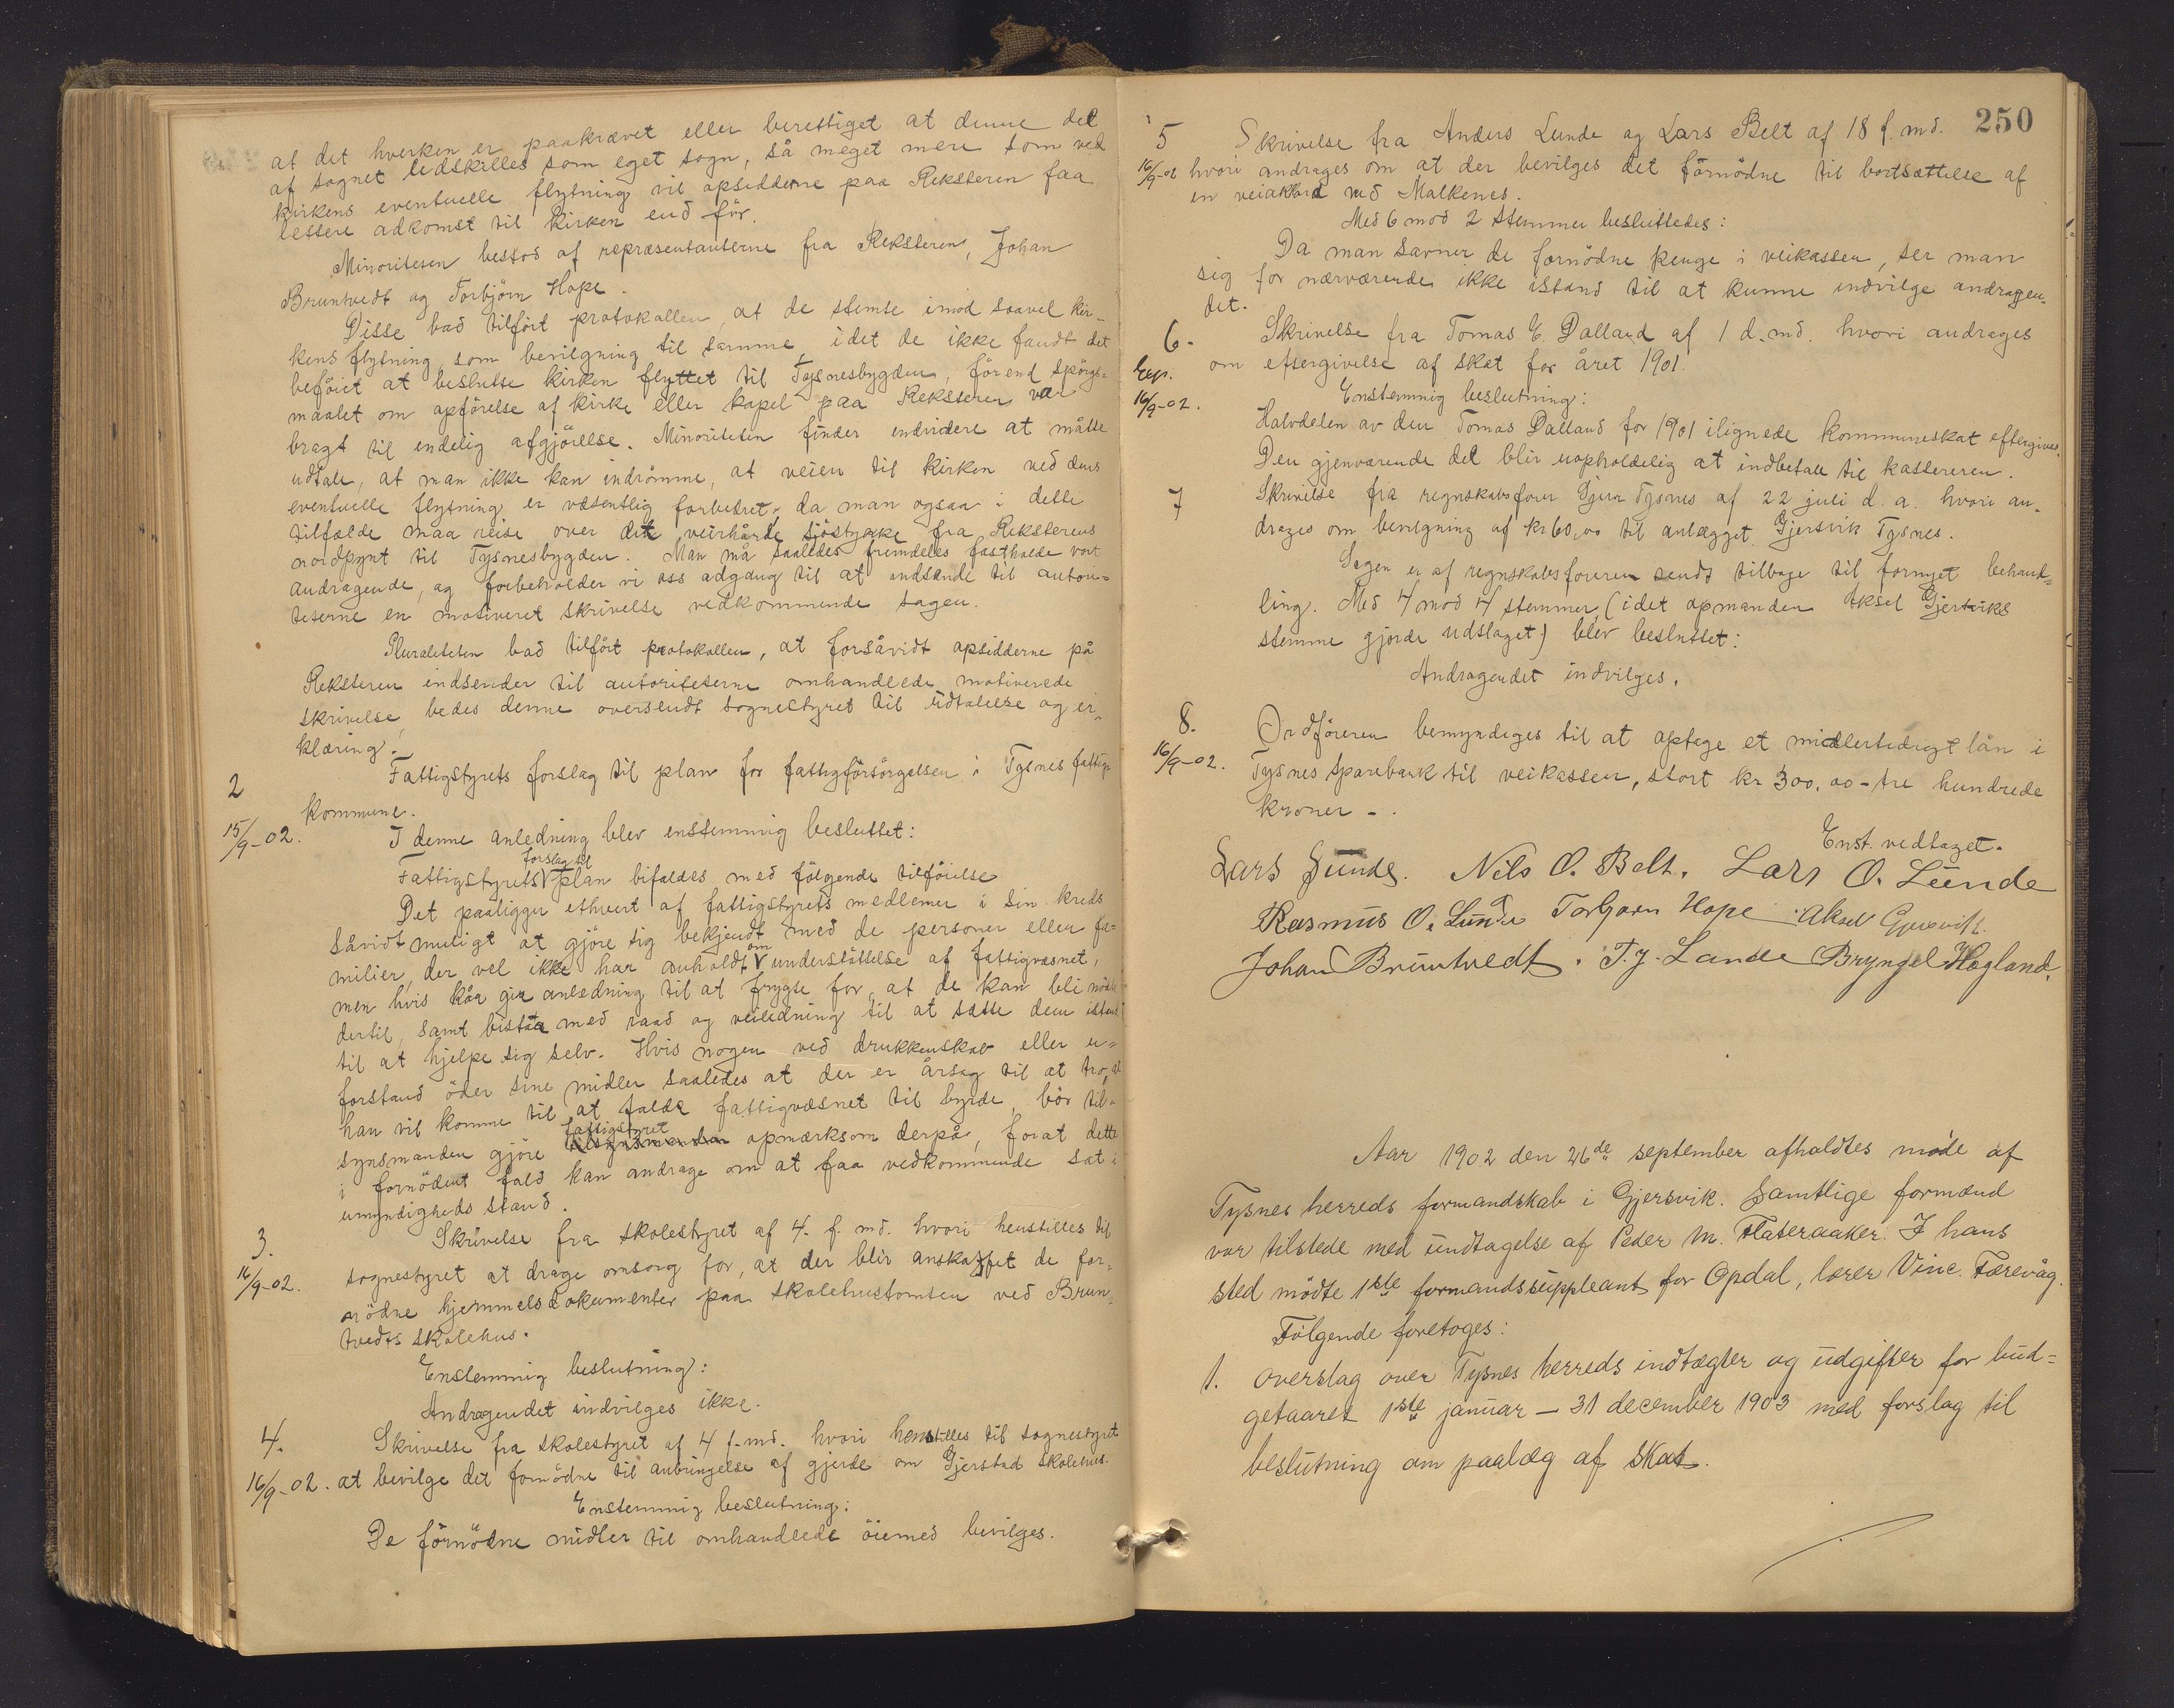 at det hverken er paakrævet eller berettiget at denne del
af sognet udskilles som eget sogn, så meget mere som ved
kirkens eventuelle flytning vil opsidderne paa Reksteren faa
lettere adkomst til kirken end før.
Minoriteten bestod af repræsentanterne fra Reksteren, Johan
Bruntvedt og Torbjörn Hope.
Disse bad tilfört protokollen, at de stemte imod saavel kir-
kens flytning som bevilgning til samme, idet de ikke fandt det
beföiet at beslutte kirken flyttet til Tysnesbygden, förend spörgs-
maalet om opförelse af kirke eller kapel paa Reksteren var
bragt til endelig afgjörelse. Minoriteten finder endvidere at måtte
udtale, at man ikke kan indrömme, at veien til kirken ved dens
eventuelle flytning er væsentlig forbedret, da man ogsaa i dette
tilfælde maa reise over det veirhårde sjöstykke fra Reksterens
nordpynt til Tysnesbygden. Man må saaledes fremdeles fastholde vort
andragende, og forbeholder vi oss adgang til at indsende til autori-
teterne en motiveret skrivelse vedkommende sagen.
Pluraliteten bad tilfört protokollen, at forsåvidt opsidderne på
Reksteren indsender til autoriteterne omhandlede motiverede
skrivelse, bedes denne oversendt sognestyret til udtalelse og er-
klæring.
2
Fattigstyrets forslag til plan for fattigforsörgelsen i Tysnes fattig-
kommune.
15/9-02.
I denne anledning blev enstemmig besluttet:
forslag til
Fattigstyrets plan bifaldes med fölgende tilföielse
Det paaligger ethvert af fattigstyrets medlemer i sin kreds
såvidt muligt at gjöre sig bekjendt med de personer eller fa-
milier, der vel ikke har anholdt om understöttelse af fattigvæsnet,
men hvis kår gir anledning til at frygte for, at de kan bli nödte
dertil, samt bistaa med raad og veiledning til at sætte dem istand
til at hjelpe sig selv. Hvis nogen ved drukkenskab eller u-
forstand öder sine midler saaledes at der er årsag til at tro, at
han vil komme til at falde fattigvæsnet til byrde, bör til-
synsmanden gjöre fattigstyret opmærksom derpå, forat dette
i fornödent fald kan andrage om at faa vedkommende sat i
umyndigheds stand.
3.
Skrivelse fra skolestyret af 4. f. md. hvori henstilles til
16/9-02.
sognestyret at drage omsorg for, at der blir anskaffet de for-
nödne hjemmelsdokumenter paa skolehustomten ved Brun-
tvedts skolehus.
Enstemmig beslutning:
Andragendet indvilges ikke.
4.
Skrivelse fra skolestyret af 4 f. md. hvori henstilles til sognestyret
16/9-02. at bevilge det fornödne til anbringelse af gjerde om Gjerstad skolehus.
Enstemmig beslutning:
De fornödne midler til omhandlede öiemed bevilges.
250
5
Skrivelse fra Anders Lunde og Lars Belt af 18 f. md.
16/9-02 hvori andrages om at der bevilges det fornödne til bortsættelse af
en veiakkord ved Malkenes.
Med 6 mod 2 stemmer besluttedes:
Da man savner de fornödne penge i veikassen, ser man
sig for nærværende ikke istand til at kunne indvilge andragen-
det.
6.
Skrivelse fra Tomas E. Dalland af 1 d. md. hvori andrages
Exp.
om eftergivelse af skat for året 1901.
16/9-02.
Enstemmig beslutning:
Halvdelen av den Tomas Dalland for 1901 ilignede kommuneskat eftergives.
Den gjenværende del blir uopholdelig at indbetale til kassereren.
7
Skrivelse fra regnskabsforer Gjert Tysnes af 22 juli d. a. hvori an-
drages om bevilgning af kr 60,00 til anlægget Gjersvik Tysnes.
Sagen er af regnskabsforeren sendt tilbage til fornyet behand-
ling. Med 4 mod 4 stemmer, (idet opmanden Aksel Gjersviks
stemme gjorde udslaget) blev besluttet:
Andragendet indvilges.
8.
Ordföreren bemyndiges til at optage et midlertidigt lån i
16/9-02.
Tysnes Sparebank til veikassen, stort kr 300,00 - tre hundrede
kroner -.
Enst. vedtaget.
Lars Sunde. Nils O. Belt. Lars O. Lunde
Rasmus O. Lunde Torbjørn Hope Aksel Gjersvik.
Johan Bruntvedt. T. J. Lande Bryngel Hogland.
Aar 1902 den 26de september afholdtes møde af
Tysnes herreds formandskab i Gjersvik. Samtlige formænd
var tilstede med undtagelse af Peder M. Flateraaker. I hans
sted mødte 1ste formandssuppleant for Opdal, lærer Vinc. Færevåg.
Følgende foretoges:
1. Overslag over Tysnes herreds indtægter og udgifter for bud-
getaaret 1ste januar – 31 december 1903 med forslag til
beslutning om paalæg af skat.